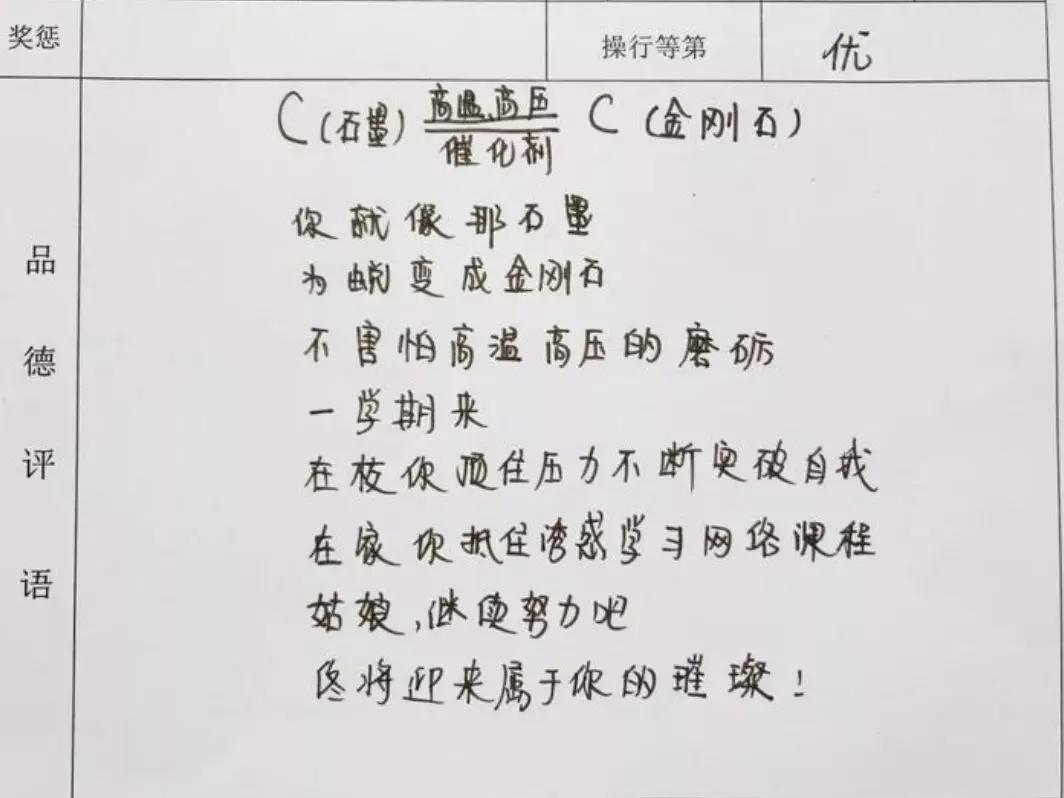 奖惩 操行等第 优
C(石墨) 高温、高压 C (金刚石)
催化剂
品德评语
你就像那石墨
为蜕变成金刚石
不害怕高温高压的磨砺
一学期来
在校你顶住压力不断突破自我
在家你抵住诱惑学习网络课程
姑娘,继续努力吧
终将迎来属于你的璀璨!